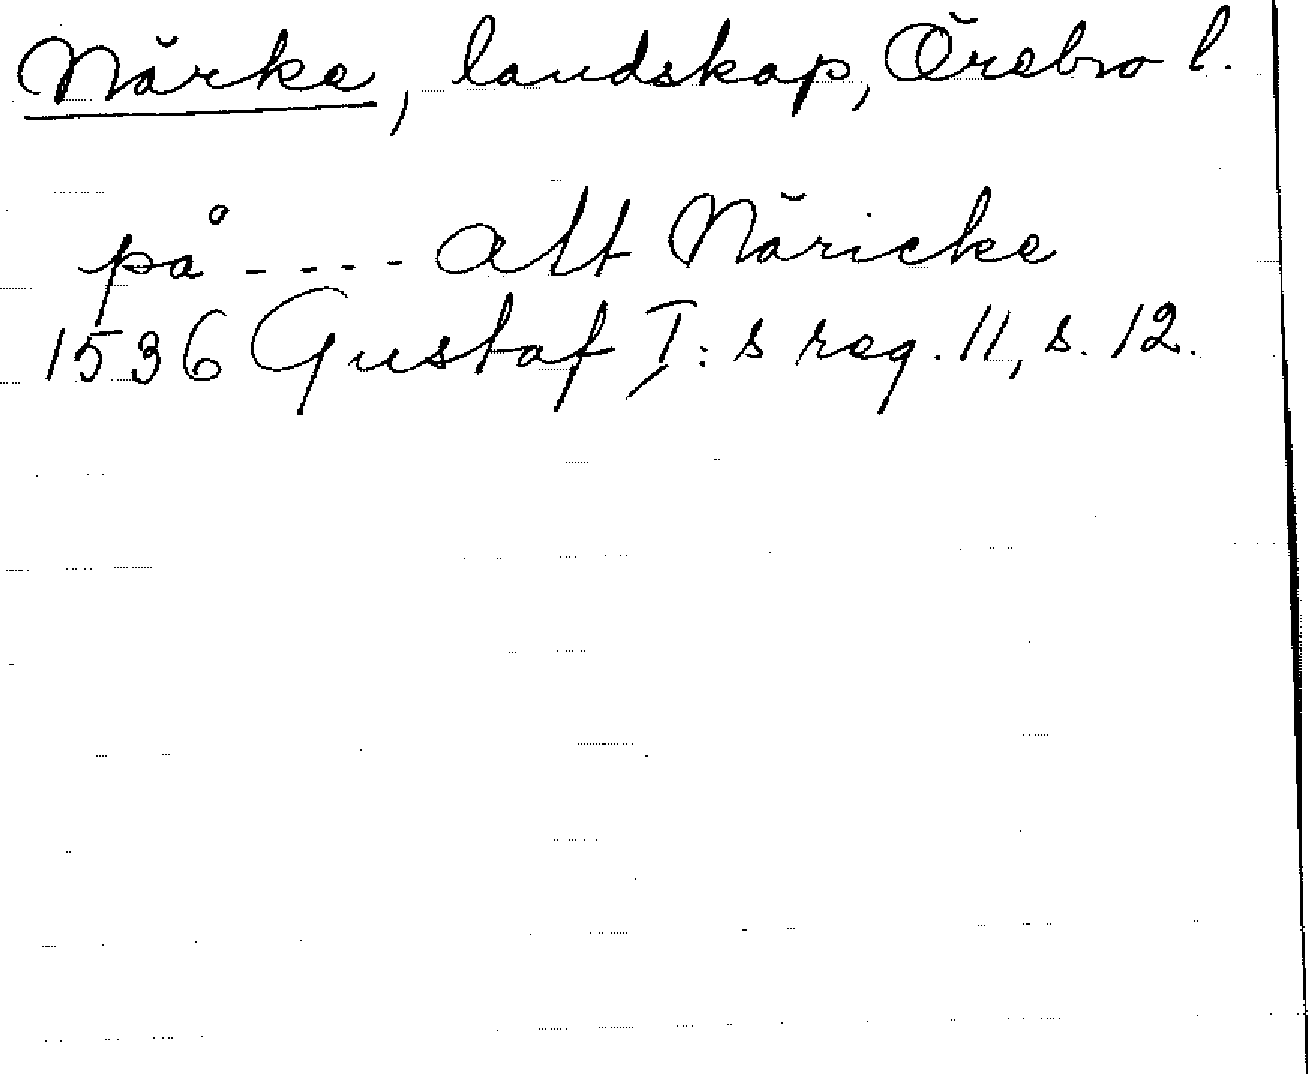 Närke, landskap, Örebro l.
på - - - - Alt Näricke
1536 Gustaf I:s reg. 11, s. 12.